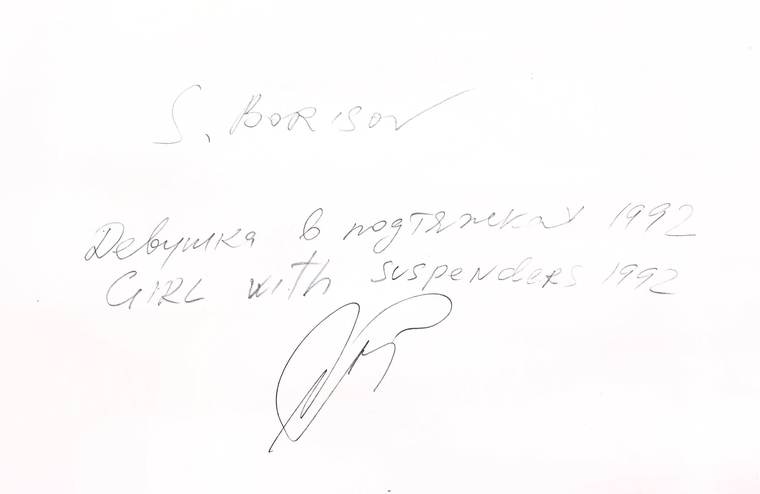 S. BORISOV
Девушка в подтяжках 1992
GIRL with suspenders 1992